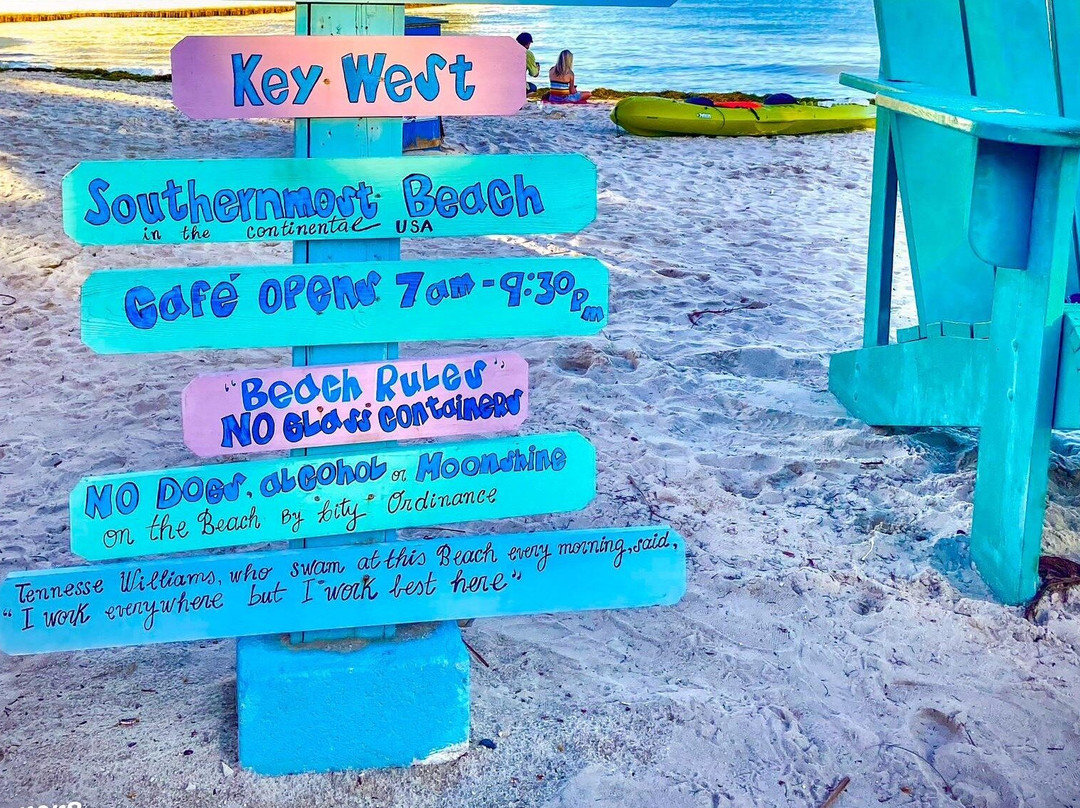 Key West
Southernmost Beach
in the continental USA
Café opens 7am - 9:30pm
"Beach Rules"
NO Glass Containers
NO DOGS, alcohol or Moonshine
on the Beach By City Ordinance
Tennesse Williams, who swam at this Beach every morning, said,
"I work everywhere but I work best here"